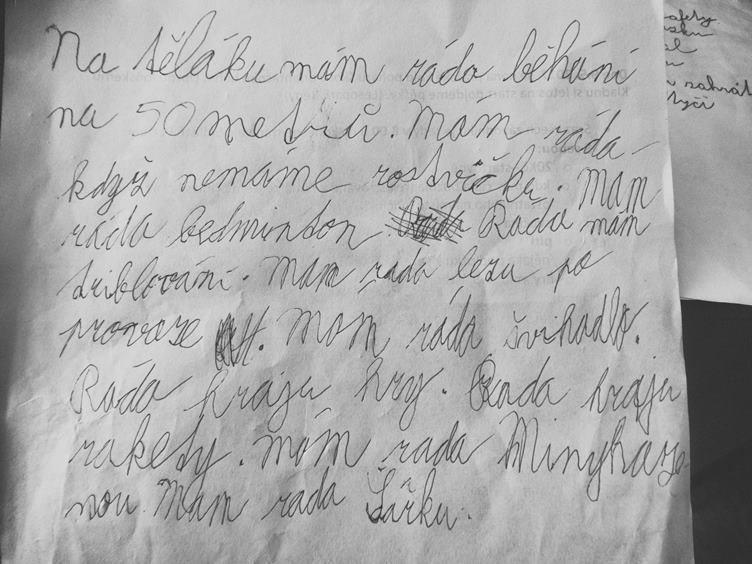 Na těláku mám ráda běhání
na 50 metrů. Mám ráda
když nemáme rostvičku. Mám
ráda bedminton. Ráda mám
driblování. Mám ráda lezu po
provaze. Mám ráda švihadlo.
Ráda hraju hry. Ráda hraju
rakety. mám rada Minyháze
nou Mám rada Šárku.